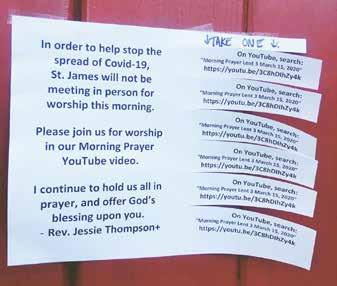 In order to help stop the
spread of Covid-19,
St. James will not be
meeting in person for
worship this morning.
Please join us for worship
in our Morning Prayer
YouTube video.
I continue to hold us all in
prayer, and offer God's
blessing upon you.
- Rev. Jessie Thompson+
↓TAKE ONE↓
On YouTube, search:
"Morning Prayer Lent 3 March 15, 2020"
https://youtu.be/3C8hDlhZy4k
On YouTube, search:
"Morning Prayer Lent 3 March 15, 2020"
https://youtu.be/3C8hDlhZy4k
On YouTube, search:
"Morning Prayer Lent 3 March 15, 2020"
https://youtu.be/3C8hDlhZy4k
On YouTube, search:
"Morning Prayer Lent 3 March 15, 2020"
https://youtu.be/3C8hDlhZy4k
On YouTube, search:
"Morning Prayer Lent 3 March 15, 2020"
https://youtu.be/3C8hDlhZy4k
On YouTube, search:
"Morning Prayer Lent 3 March 15, 2020"
https://youtu.be/3C8hDlhZy4k